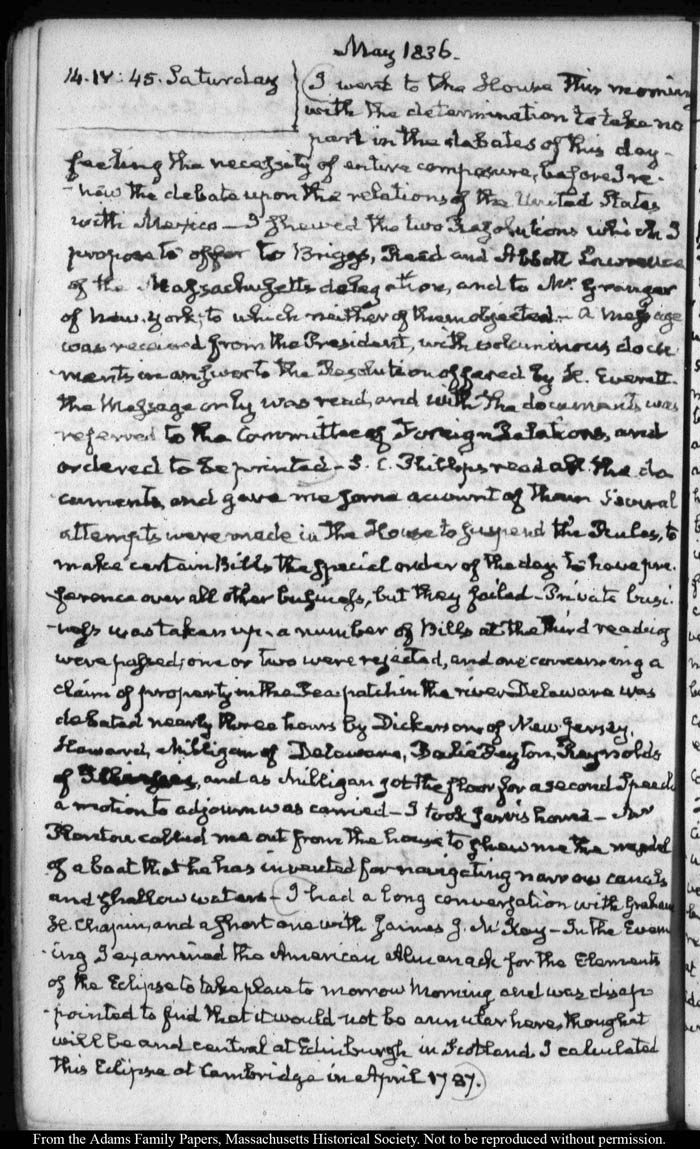 May 1836.
14. IV: 45. Saturday
I went to the House this morning
with the determination to take no
part in the debates of this day-
feeling the necessity of entire composure, before I re-
-new the debate upon the relations of the United States
with Mexico - I shewed the two Resolutions which I
propose to offer to Briggs, Reed and Abbott Lawrence
of the Massachusetts delegation, and to Mr. Granger
of New-York; to which neither of them objected - A message
was received from the President, with voluminous docu
ments in answer to the Resolution offered by H. Everett.
the Message only was read, and with the documents was
referred to the Committee of Foreign Relations, and
ordered to be printed - S. C. Phillips read all the do
cuments, and gave me some account of them Several
attempts were made in the House to suspend the Rules, to
make certain Bills the special order of the day to have pre.
ference over all other business, but they failed - Private busi.
-ness was taken up. a number of Bills at the third reading
were passed; one or two were rejected, and one concerning a
claim of property in the Pea patch in the river Delaware was
debated nearly three hours by Dickerson of New Jersey,
Howard, Milligan of Delaware, Balie Peyton, Reynolds
of Illinois, and as Milligan got the floor for a second Speech
a motion to adjourn was carried - I took Jarvis home - Mr
called me out from the house to shew me the model
of a boat that he has invented for navigating narrow canals
and shallow waters - I had a long conversation with Graham
H. Chapin, and a short one with James J. McKay - In the Even
ing I examined the American Almanack for the Elements
of the Eclipse to take place to morrow Morning and was disap
-pointed to find that it would not be annular here, though it
will be and central at Edinburgh in Scotland. I calculated
this Eclipse at Cambridge in April 1787.
From the Adams Family Papers, Massachusetts Historical Society. Not to be reproduced without permission.